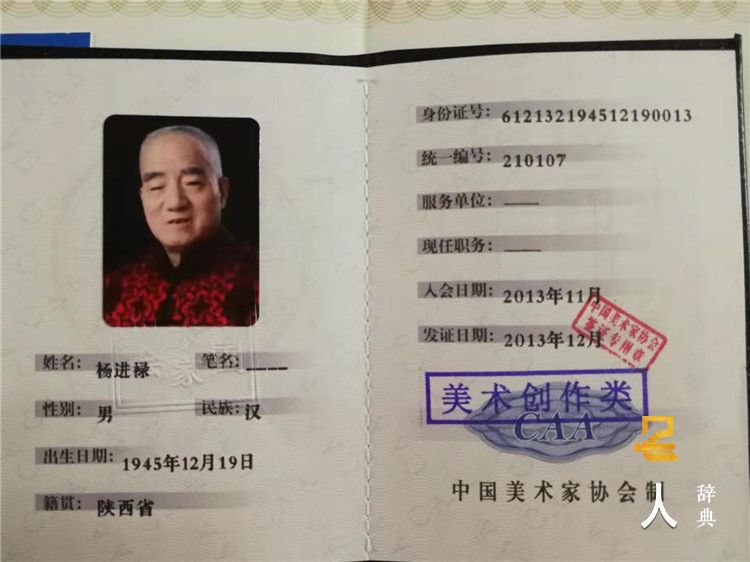 姓名: 杨进禄 笔名: ----
性别: 男 民族: 汉
出生日期: 1945年12月19日
籍贯: 陕西省
身份证号: 612132194512190013
统一编号: 210107
服务单位: ——
现任职务: ——
入会日期: 2013年11月
发证日期: 2013年12月
中国美术家协会
签证专用章
美术创作类
CAA
中国美术家协会制
人 辞典